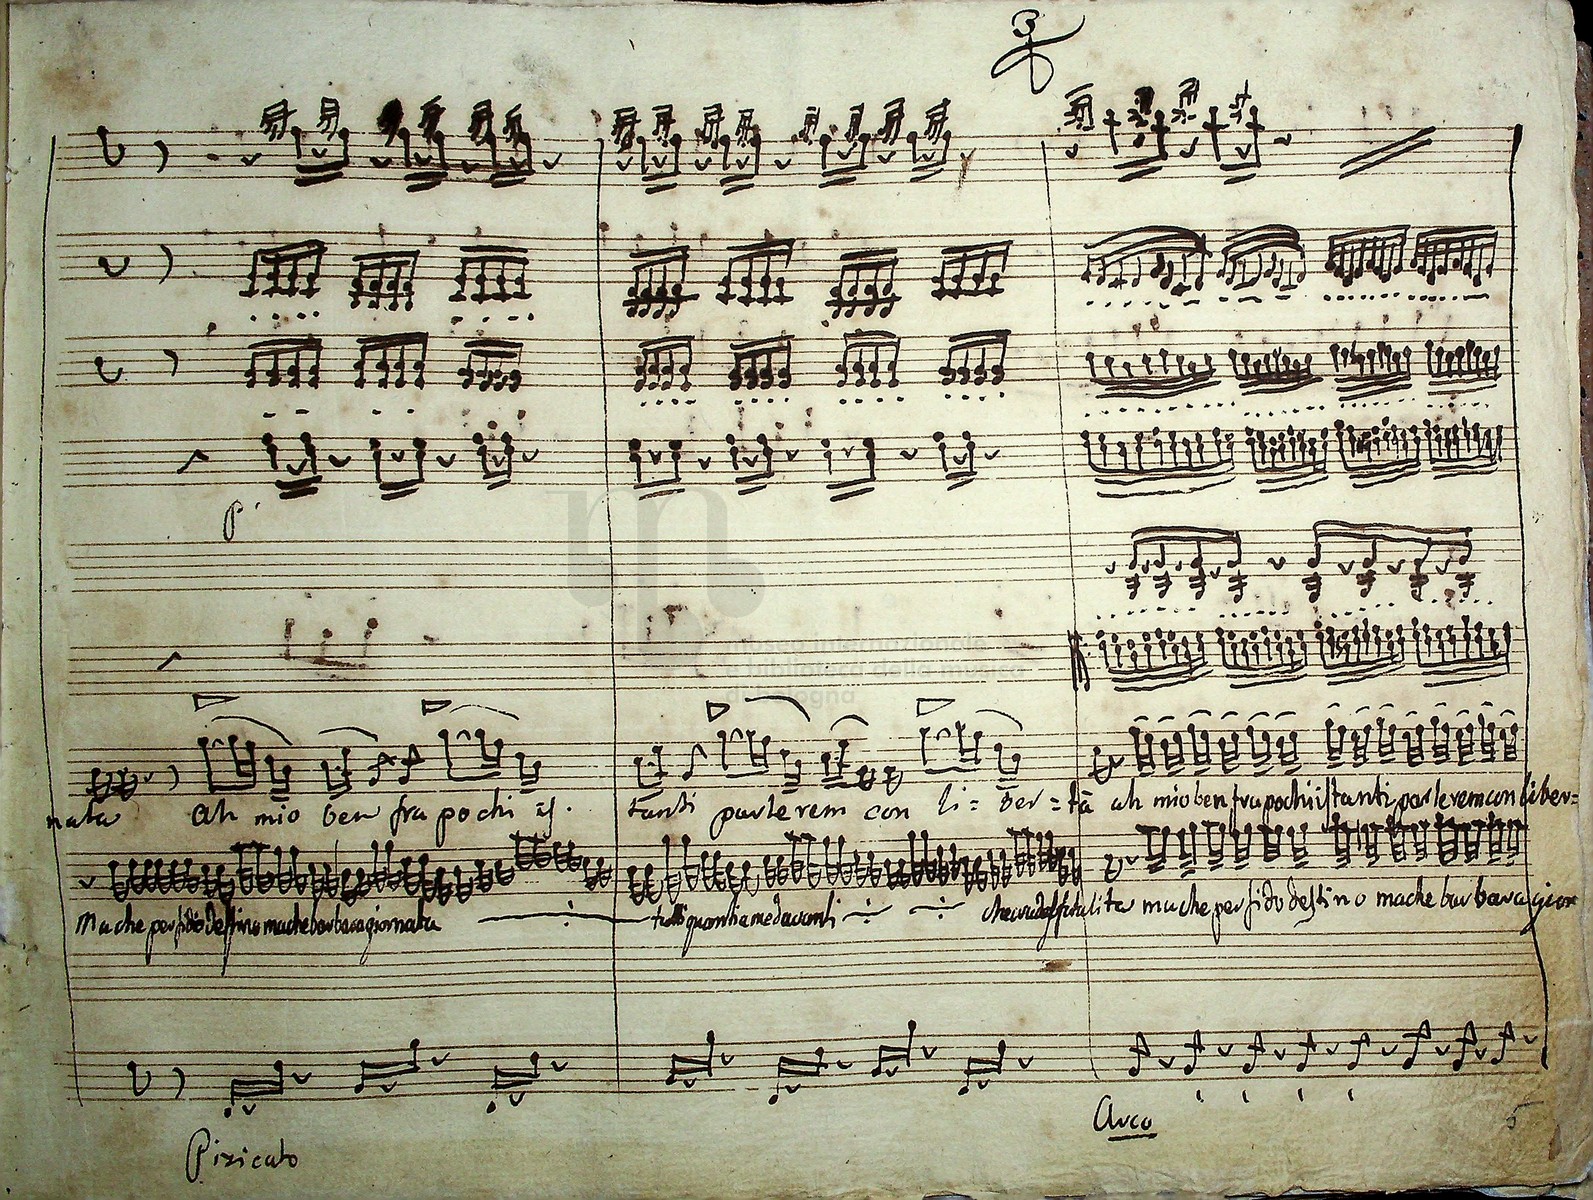 3
p.
museo internazionale
e biblioteca della musica
di bologna
nata Ah mio ben fra pochi is. tanti parlerem con li= ber =tà ah mio ben fra pochi istanti parlerem con liber=
Ma che perfido destino ma che barbara giornata tutti quanti a me davanti che crudel fatalità ma che perfido destino ma che barbara gior
Arco
5
Pizicato